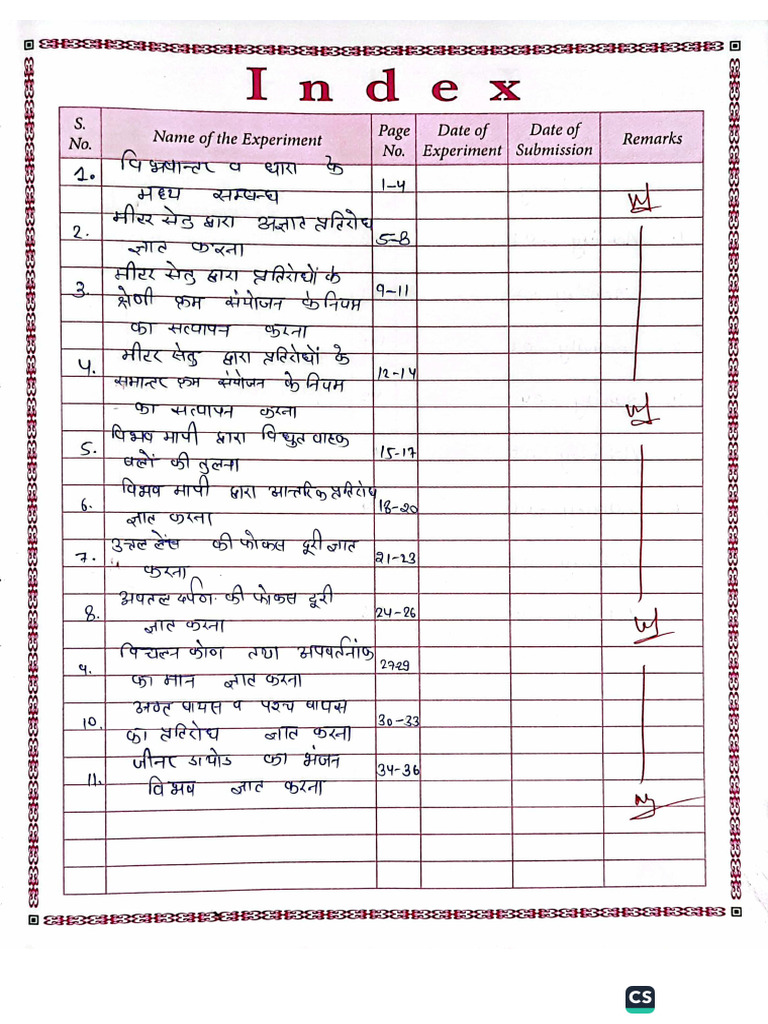 Index
S. No. Name of the Experiment Page No. Date of Experiment Date of Submission Remarks
1. विभवान्तर व धारा के
मध्य सम्बन्ध 1-4
2. मीटर सेतु द्वारा अज्ञात प्रतिरोध
ज्ञात करना 5-8
3. मीटर सेतु द्वारा प्रतिरोधों के 9-11
श्रेणी क्रम संयोजन के नियम
का सत्यापन करना
4. मीटर सेतु द्वारा प्रतिरोधों के 12-14
समान्तर क्रम संयोजन के नियम
का सत्यापन करना
5. विभव मापी द्वारा विधुत वाहक 15-17
बलों की तुलना
6. विभव मापी द्वारा आन्तरिक प्रतिरोध 18-20
ज्ञात करना
7. उत्तल लेंस की फोकस दूरी ज्ञात 21-23
करना
8. अवतल दर्पण की फोकस दूरी 24-26
ज्ञात करना
9. विचलन कोण तथा अपवर्तनांक 27-29
का मान ज्ञात करना
10. अग्र वायस व पश्च वायस 30-33
का प्रतिरोध ज्ञात करना
11. जीनर डायोड का भंजन 34-36
विभव ज्ञात करना
CS